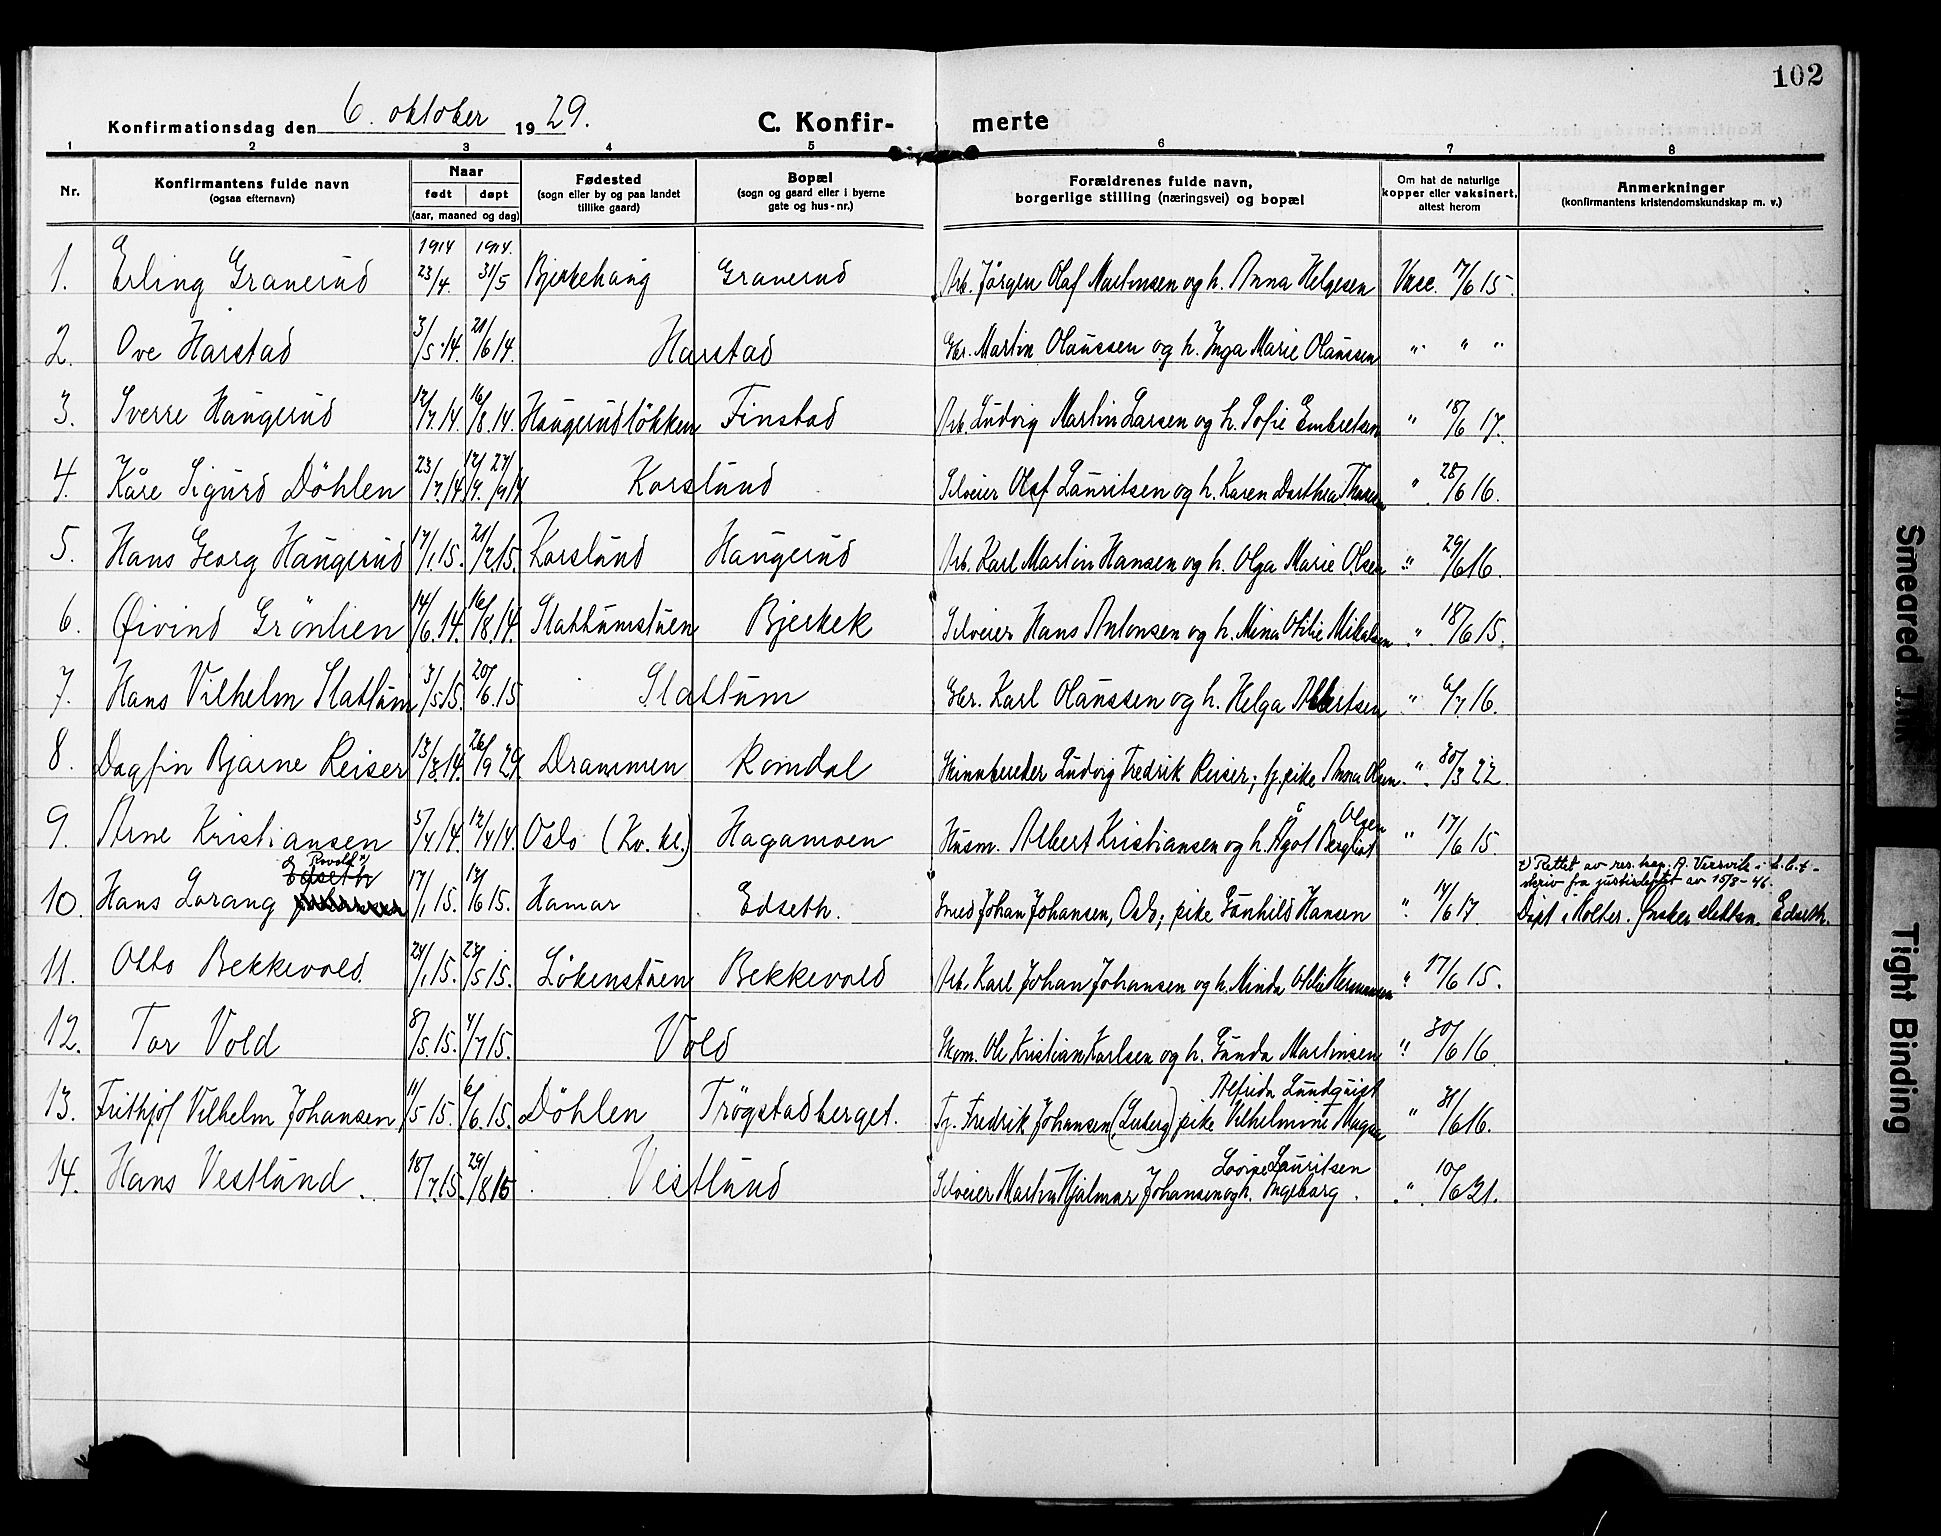 102
Konfirmationsdag den 6. oktober 1929.
C. Konfirmerte
1 2 3 4 5 6 7 8
Nr.
Konfirmantens fulde navn
(ogsaa efternavn)
Naar
født døpt
(aar, maaned og dag)
Fødested
(sogn eller by og paa landet
tillike gaard)
Bopæl
(sogn og gaard eller i byerne
gate og hus-nr.)
Forældrenes fulde navn,
borgerlige stilling (næringsvei) og bopæl
Om hat de naturlige
kopper eller vaksinert,
attest herom
Anmerkninger
(konfirmantens kristendomskundskap m. v.)
1914 1914.
1. Erling Granerud 23/4. 31/5 Bjerkehaug Granerud Arb. Jörgen Olaf Martinsen og h. Anna Helgesen Vacc. 7/6 15.
2. Ove Harstad 3/5.14. 21/6 14. Harstad Gbr. Martin Olaussen og h. Inga Marie Olaussen " " "
3. Sverre Haugerud 12/7.14. 16/8.14. Haugerudlökken Finstad Arb. Ludvig Martin Larsen og h. Sofie Embretsen " 18/6 17.
4. Kåre Sigurd Döhlen 23/7 14. Korslund Selveier Olaf Lauritsen og h. Karen Dorthea " 28/6 16.
5. Hans Georg Haugerud 17/1.15. 21/7.15. Korslund Haugerud Arb. Karl Martin Hansen og h. Olga Marie Olsen " 29/6 16.
6. Øivind Grönlien 14/6.14. 16/8.14. Slattumstuen Bjerkek Selveier Hans Antonsen og h. Mina Otilie Mikalsen " 18/6 15.
7. Hans Vilhelm Slattum 3/5 15. 20/6.15 Slattum Gbr. Karl Olaussen og h. Helga Albertsen " 6/7.16.
8. Dagfin Bjarne Reiser 13/8.14. 26/9 29. Drammen Romdal Skinnbereder Ludvig Fredrik Reiser; fr. pike Anna Olsen. " 30/3 22.
Olsen
9. Arne Kristiansen 5/4 14. 12/4 14. Oslo (Kv. kl.) Hagamoen Husm. Albert Kristiansen og h. Ågot Bergliot " 17/6 15.
Edseth
x) Rettet av res. kap. A.
skriv fra justisdeptet av 15/3-46.
10. Hans Lorang 17/1 15. Hamar Edseth. Smed Johan Johansen, Oslo; pike Gunhild Hansen " 14/6 17 Döpt i Holter. Ønsker slektsn. Edseth.
11. Otto Bekkevold. 24/1 15. 23/5 15. Lökenstuen Bekkevold Arb. Karl Johan Johansen og h. Minda Otilie Hermansen " 17/6 15.
12. Tor Vold 8/5.15. 4/7 15. Vold Skom. Ole Kristian Karlsen og h. Gunda Martinsen " 30/6 16.
Alfrida Lundquist
13. Frithjof Vilhelm Johansen 11/5 15. 6/6.15. Döhlen Trögstadberget. Tj. Fredrik Johansen pike Vilhelmine " 31/6 16.
Lovise Lauritsen
14. Hans Vestlund. 18/7.15. 29/8 15 Vestlund Selveier Martin Hjalmar Johansen og h. Ingeborg. " 10/6 21.
Smeared Ink
Tight Binding